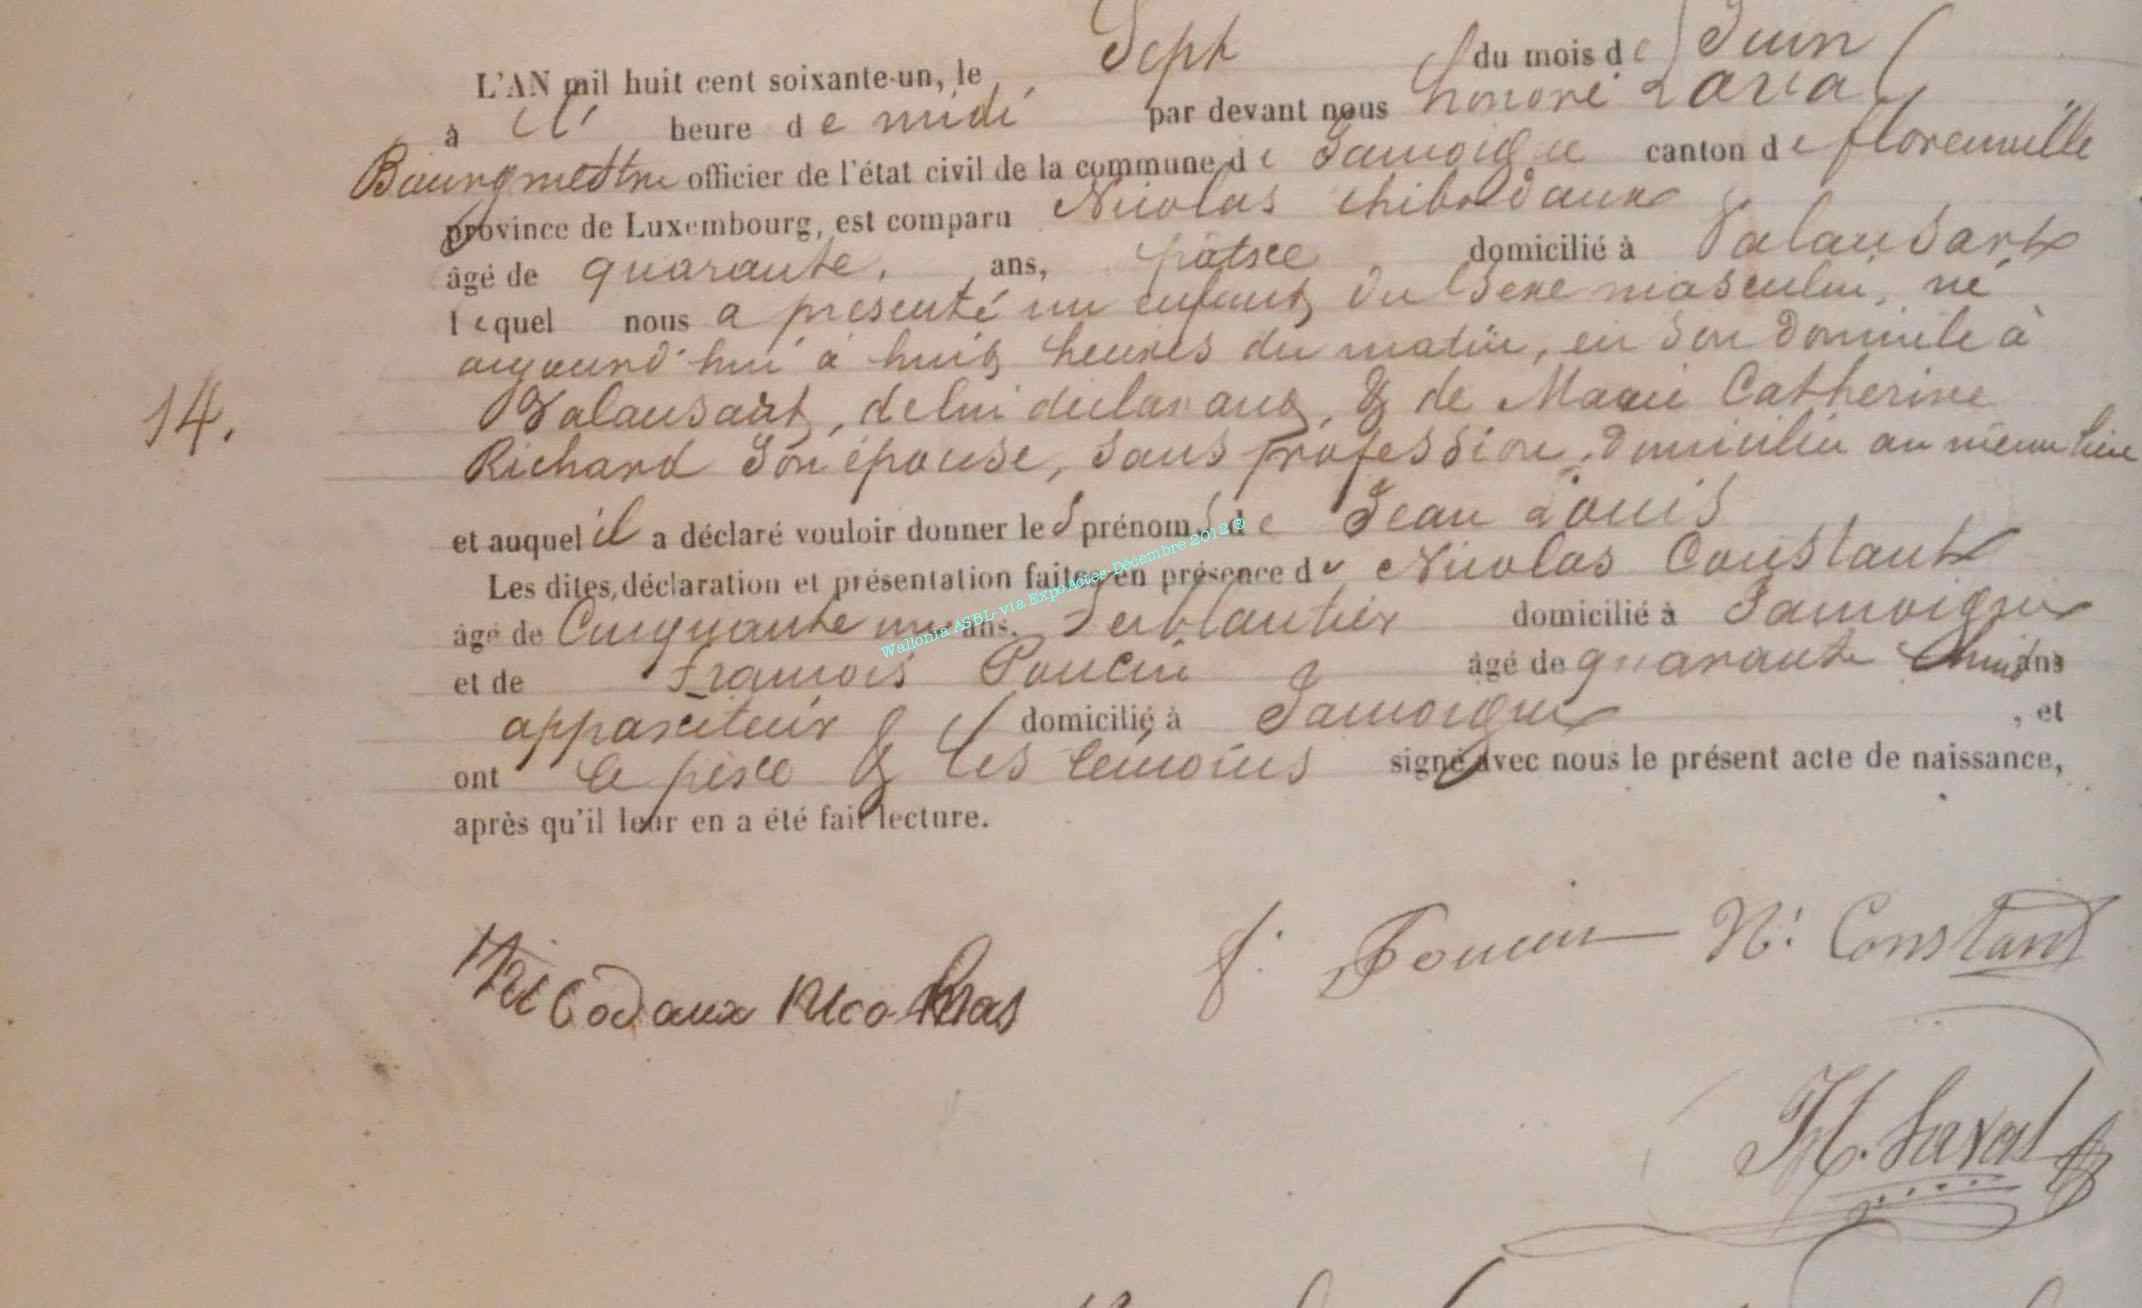 L'AN mil huit cent soixante-un, le Sept du mois de Juin
à heure de midi par devant nous honoré Laval
Bourgmettre officier de l'état civil de la commune de Jamoigne canton de florenville
province de Luxembourg, est comparu Nicolas thibodaux
âgé de quarante ans, domicilié à Valansart
lequel nous a présenté un enfant du sexe masculin, né
aujourd'hui à huit heures du matin, en son domicile à
Valansart, de lui déclarant, & de Marie Catherine
Richard son épouse, sans profession, domiciliée au même lieu
14.
et auquel il a déclaré vouloir donner les prénoms de Jean Louis
Les dites déclaration et présentation faites en présence de Nicolas Constant
âgé de Cinquante un ans, ferblantier domicilié à Jamoigne
et de François Poncin âgé de quarante huit ans
appariteur domicilié à Jamoigne , et
ont le père & les témoins signé avec nous le présent acte de naissance,
après qu'il leur en a été fait lecture.
Wallonia ASBL- via ExpoActes-Décembre 2012
Tibodaux Nicolas f. Poncin N: Constant
H. Laval